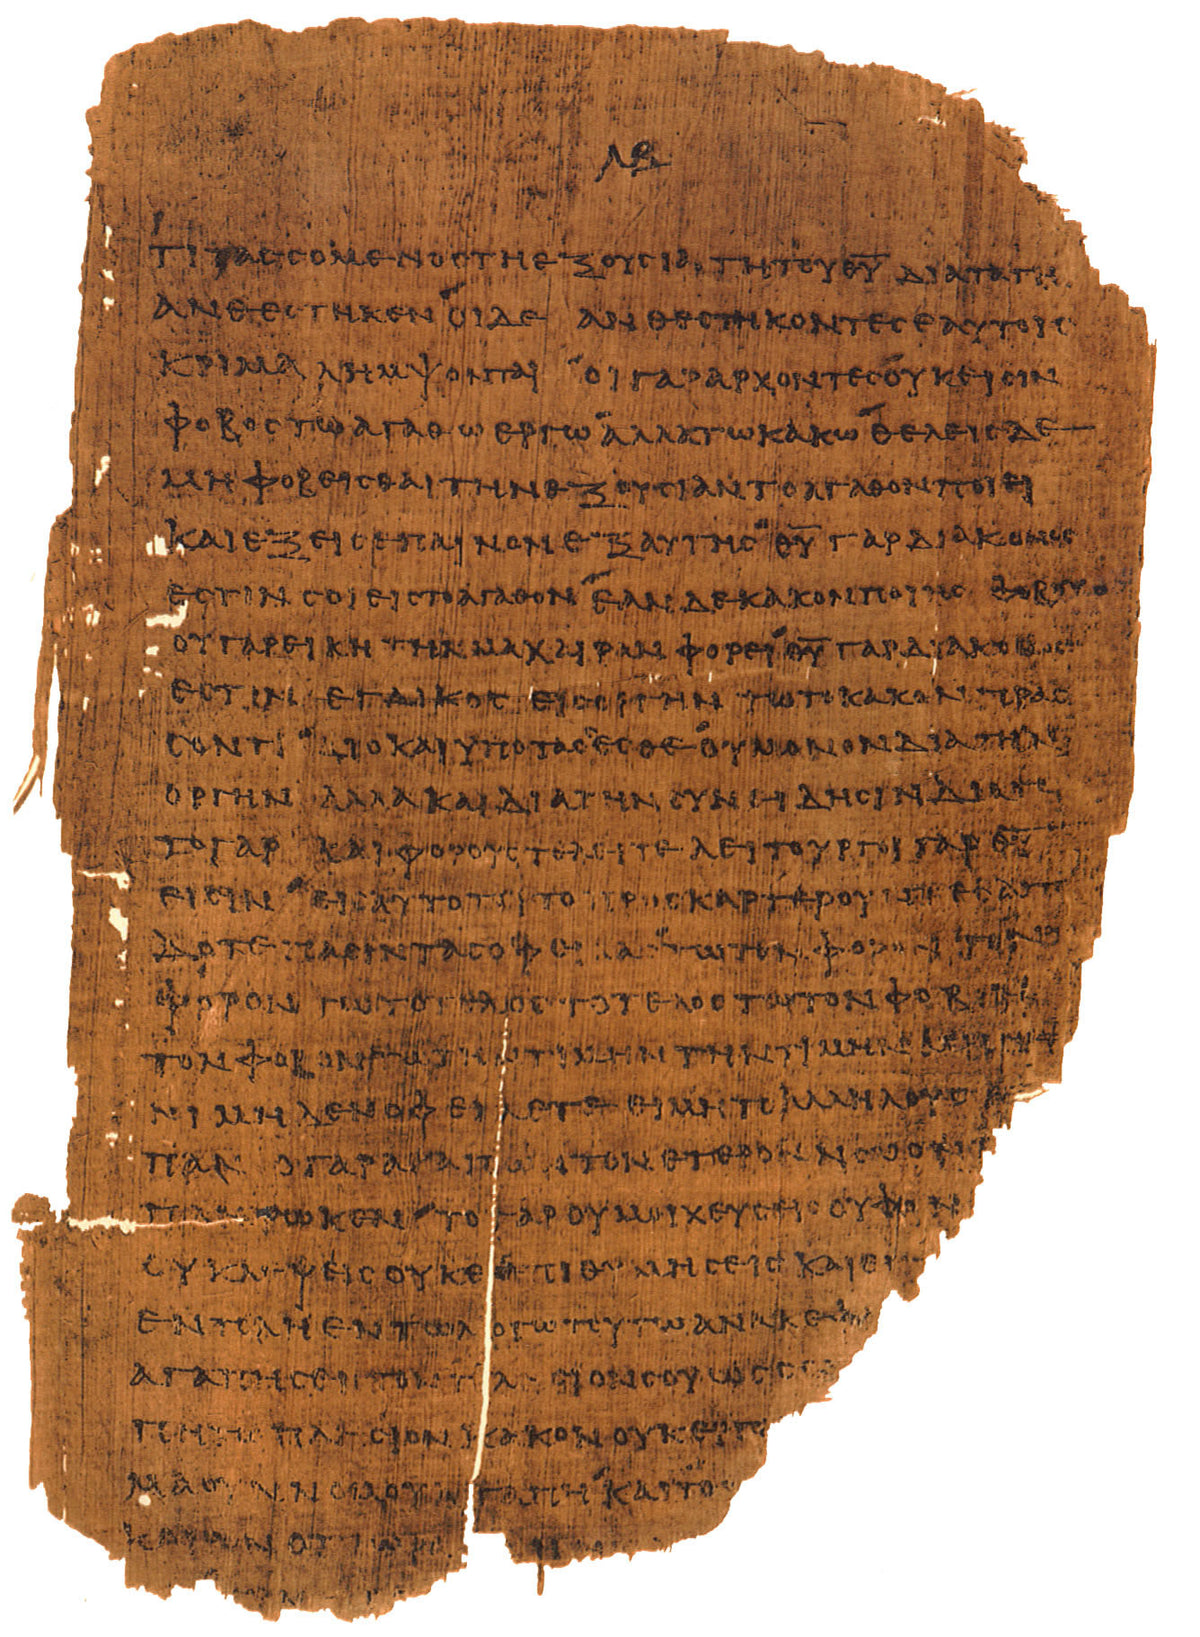 ΛΒ
ΤΙΤΑϹϹΟΜΕΝΟϹΤΗΕΞΟΥϹΙΑ ΤΗΤΟΥΘ̅Υ̅ ΔΙΑΤΑΓΗ
ΑΝΘΕϹΤΗΚΕΝ ΟΙΔΕ ΑΝΘΕϹΤΗΚΟΝΤΕϹΕΑΥΤΟΙϹ
ΚΡΙΜΑ ΛΗΜΨΟΝΤΑΙ ΟΙΓΑΡΑΡΧΟΝΤΕϹΟΥΚΕΙϹΙΝ
ΦΟΒΟϹΤΩΑΓΑΘΩΕΡΓΩΑΛΛΑΤΩΚΑΚΩ ΘΕΛΕΙϹΔΕ
ΜΗΦΟΒΕΙϹΘΑΙΤΗΝΕΞΟΥϹΙΑΝΤΟΑΓΑΘΟΝΠΟΙΕΙ
ΚΑΙΕΞΕΙϹΕΠΑΙΝΟΝΕΞΑΥΤΗϹ Θ̅Υ̅ ΓΑΡΔΙΑΚΟΝΟϹ
ΕϹΤΙΝϹΟΙΕΙϹΤΟΑΓΑΘΟΝ ΕΑΝΔΕΚΑΚΟΝΠΟΙΗϹ ΦΟΒΟΥ
ΟΥΓΑΡΕΙΚΗΤΗΝΜΑΧΑΙΡΑΝΦΟΡΕΙ Θ̅Υ̅ ΓΑΡΔΙΑΚΟΝΟϹ
ΕϹΤΙΝ ΕΓΔΙΚΟϹ ΕΙϹΟΡΓΗΝ ΤΩΤΟΚΑΚΟΝΠΡΑϹ
ϹΟΝΤΙ ΔΙΟΚΑΙΥΠΟΤΑϹϹΕϹΘΕΟΥΜΟΝΟΝΔΙΑΤΗΝ
ΟΡΓΗΝ ΑΛΛΑΚΑΙΔΙΑΤΗΝϹΥΝΕΙΔΗϹΙΝΔΙΑ
ΤΟΓΑΡ ΚΑΙΦΟΡΟΥϹΤΕΛΕΙΤΕΛΕΙΤΟΥΡΓΟΙΓΑΡΘ̅Υ̅
ΕΙϹΙΝ ΕΙϹΑΥΤΟΤΟΥΤΟΠΡΟϹΚΑΡΤΕΡΟΥ
ΔΟΤΕΠΑϹΙΝΤΑϹΟΦΕΙ ΤΩΤΟΝΦΟΡΟΝ ΤΟΝ
ΦΟΡΟΝ ΤΩΤΟΤΕΛΟϹΤΟΤΕΛΟϹΤΩΤΟΝΦΟΒΟΝ
ΤΟΝΦΟΒΟΝΤΩΤΗΝΤΙΜΗΝΤΗΝΤΙΜΗΝΜΗ
ΝΙΜΗΔΕΝΟΦΕΙΛΕΤΕΕΙΜΗΤΟΑΛΛΗΛΟΥϹ
ΠΑΝ ΟΓΑΡΑΓΑΠΩΝΤΟΝΕΤΕΡΟΝΝΟΜΟΝ
ΠΛΗΡΩΚΕΝ ΤΟΓΑΡΟΥΜΟΙΧΕΥϹΕΙϹΟΥΦΟΝ
ΟΥΚΛΕΨΕΙϹΟΥΚΕΠΙΘΥΜΗϹΕΙϹΚΑΙΕΙ
ΕΝΤΟΛΗΕΝΤΩΛΟΓΩΤΟΥΤΩΑΝΑΚΕΦΑ
ΑΓΑΠΗϹΕΙϹΤΟΝΠΛΗϹΙΟΝϹΟΥΩϹϹΕ
ΠΗ ΠΛΗϹΙΟΝΚΑΚΟΝΟΥΚΕΡΓ
ΜΑΟΥΝΝΟΜΟΥΗΑΓΑΠΗΚΑΙΤΟΥ
ΚΑΙΡΟΝΟΤΙΩΡΑ